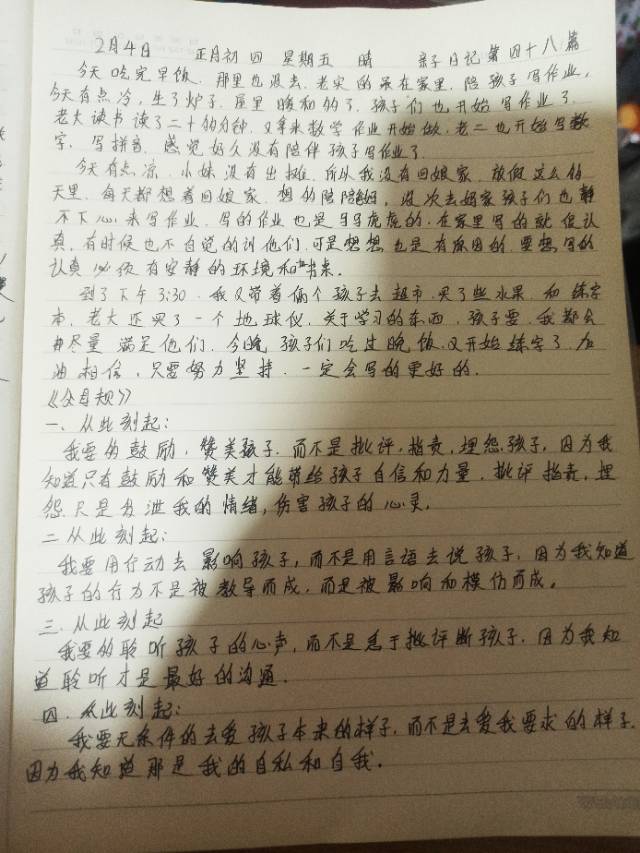 2月4日 正月初四 星期五 晴 亲子日记第四十八篇
今天吃完早饭.那里也没去.老实的呆在家里.陪孩子写作业,
今天有点冷,生了炉子.屋里暖和的了.孩子们也开始写作业了.
老大读书读了二十的分钟.又拿来数学作业开始做.老二也开始写数
字,写拼音.感觉好久没有陪伴孩子写作业了.
今天有点凉.小妹没有出摊.所以我没有回娘家.放假这么的
天里.每天都想着回娘家.想的陪陪.没次去妈家孩子们也静
不下心来写作业.写的作业也是马马虎虎的.在家里写的就很认
真.有时候也不自觉的讨他们.可是想想也是有原因的.要想写的
认真必须有安静的环境和书桌.
到了下午3:30.我又带着俩个孩子去超市.买了些水果.和练字
本.老大还买了一个地球仪.关于学习的东西.孩子要.我都会
尽量满足他们.今晚孩子们吃过晚饭.又开始练字了.加
油相信,只要努力坚持.一定会写的更好的.
《父母规》
一、从此刻起:
我要的鼓励,赞美孩子.而不是批评,指责,埋怨孩子,因为我
知道只有鼓励和赞美才能带给孩子自信和力量,批评指责,埋
怨.只是发泄我的情绪,伤害孩子的心灵.
二从此刻起:
我要用行动去影响孩子,而不是用言语去说孩子.因为我知道
孩子的行为不是被教导而成,而是被影响和模仿而成。
三.从此刻起
我要的聆听孩子的心声,而不是急于批评断孩子.因为我知
道聆听才是最好的沟通.
四.从此刻起:
我要无条件的去爱孩子本来的样子,而不是去爱我要求的样子.
因为我知道那是我的自私和自我.